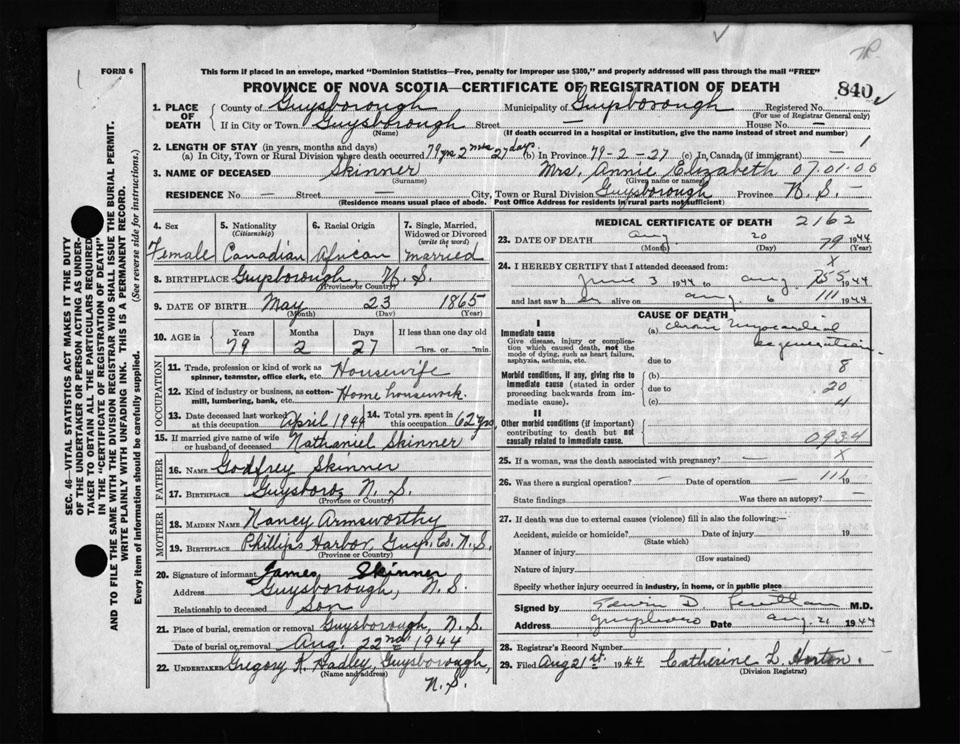 FORM 6
This form if placed in an envelope, marked "Dominion Statistics—Free, penalty for improper use $300," and properly addressed will pass through the mail "FREE"
PROVINCE OF NOVA SCOTIA—CERTIFICATE OF REGISTRATION OF DEATH
840
SEC. 46—VITAL STATISTICS ACT MAKES IT THE DUTY
OF THE UNDERTAKER OR PERSON ACTING AS UNDER-
TAKER TO OBTAIN ALL THE PARTICULARS REQUIRED
IN THE "CERTIFICATE OF REGISTRATION OF DEATH"
AND TO FILE THE SAME WITH THE DIVISION REGISTRAR WHO SHALL ISSUE THE BURIAL PERMIT.
WRITE PLAINLY WITH UNFADING INK. THIS IS A PERMANENT RECORD.
Every item of information should be carefully supplied. (See reverse side for instructions.)
1. PLACE OF DEATH
County of Guysborough Municipality of Guysborough Registered No.
(For use of Registrar General only)
If in City or Town Guysborough Street — House No. —
(Name) (If death occurred in a hospital or institution, give the name instead of street and number)
2. LENGTH OF STAY (in years, months and days) 1
(a) In City, Town or Rural Division where death occurred 79 yrs 2 mths 27 days (b) In Province 79-2-27 (c) In Canada (if immigrant) —
3. NAME OF DECEASED Skinner Mrs. Annie Elizabeth 07.01.00
(Surname) (Given name or names)
RESIDENCE No. — Street City, Town or Rural Division Guysborough Province N.S. —
(Residence means usual place of abode. Post Office Address for residents in rural parts not sufficient)
4. Sex Female
5. Nationality (Citizenship) Canadian
6. Racial Origin African
7. Single, Married, Widowed or Divorced (write the word) married
8. BIRTHPLACE Guysborough N.S.
(Province or Country)
9. DATE OF BIRTH May 23 1865
(Month) (Day) (Year)
10. AGE in Years 79 Months 2 Days 27 If less than one day old
hrs. or min.
OCCUPATION
11. Trade, profession or kind of work as spinner, teamster, office clerk, etc. Housewife
12. Kind of industry or business, as cotton-mill, lumbering, bank, etc. Home housework.
13. Date deceased last worked at this occupation April 1944 14. Total yrs. spent in this occupation 62 yrs
15. If married give name of wife or husband of deceased Nathaniel Skinner
FATHER
16. NAME Godfrey Skinner
17. BIRTHPLACE Guysboro, N.S.
(Province or Country)
MOTHER
18. MAIDEN NAME Nancy Armsworthy
19. BIRTHPLACE Phillips Harbor Guys. Co. N.S.
(Province or Country)
20. Signature of informant James Skinner
Address Guysborough, N.S.
Relationship to deceased Son
21. Place of burial, cremation or removal Guysborough, N.S.
Date of burial or removal Aug. 22nd 1944
22. UNDERTAKER Gregory K. Hadley, Guysborough, N.S.
(Name and address)
MEDICAL CERTIFICATE OF DEATH 2162
23. DATE OF DEATH Aug 20 79 1944
(Month) (Day) (Year)
X
24. I HEREBY CERTIFY that I attended deceased from:
June 3 1944 to Aug. 1944
and last saw h er alive on Aug. 6 111 1944
CAUSE OF DEATH
I
Immediate cause
Give disease, injury or complication which caused death, not the mode of dying, such as heart failure, asphyxia, asthenia, etc.
(a) chronic myocardial degeneration.
due to
Morbid conditions, if any, giving rise to immediate cause (stated in order proceeding backwards from immediate cause).
(b) 8
due to 20
(c) 4
II
Other morbid conditions (if important) contributing to death but not causally related to immediate cause.
0934
25. If a woman, was the death associated with pregnancy? — X
26. Was there a surgical operation? — Date of operation — 111 19
State findings Was there an autopsy? —
27. If death was due to external causes (violence) fill in also the following:—
Accident, suicide or homicide? Date of injury 19
(State which)
Manner of injury
(How sustained)
Nature of injury
Specify whether injury occurred in industry, in home, or in public place
Signed by Edwin D. M.D.
Address Guysboro Date Aug 21 1944
28. Registrar's Record Number
29. Filed Aug 21st. 1944 Catherine L. Horton.
(Division Registrar)